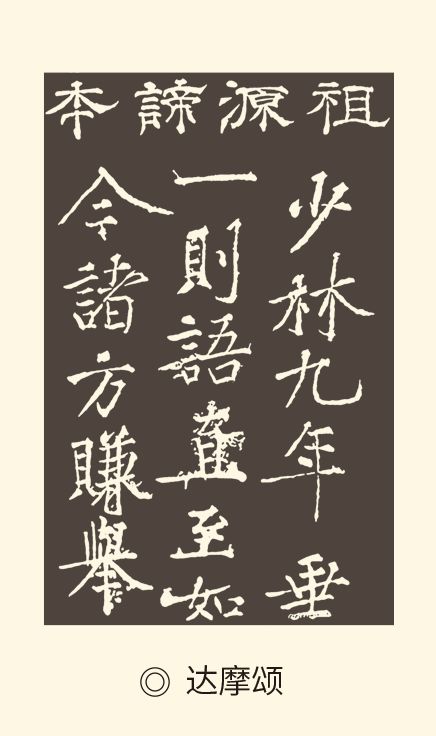 祖源諦本
少林九年垂
一則語直至如
今諸方賺舉
◎ 达摩颂